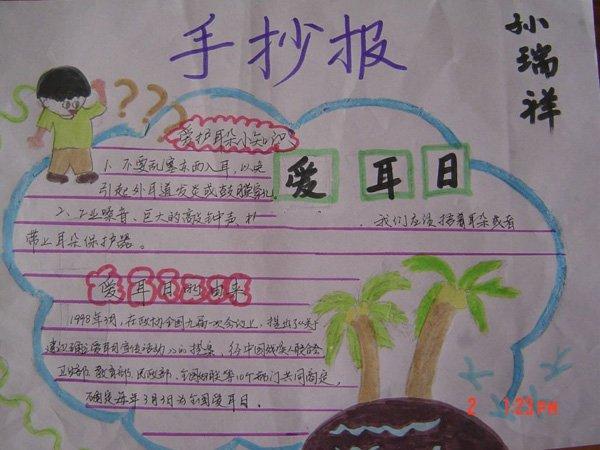 手抄报
孙瑞祥
爱护耳朵小知识
爱耳日
1、不要乱塞东西入耳，以免
引起外耳道发炎或鼓膜穿孔。
2、工业噪音、巨大的 我们应该捂着耳朵或者
带上耳朵保护器。
爱耳日的由来
1998年3月，在政协全国九届一次会议上，
建议 宣传活动》的提案，经中国残疾人联合会
卫生部、教育部、民政部、全国妇联等10个部门共同商定，
确定每年3月3日为全国爱耳日。
2 1:23PM